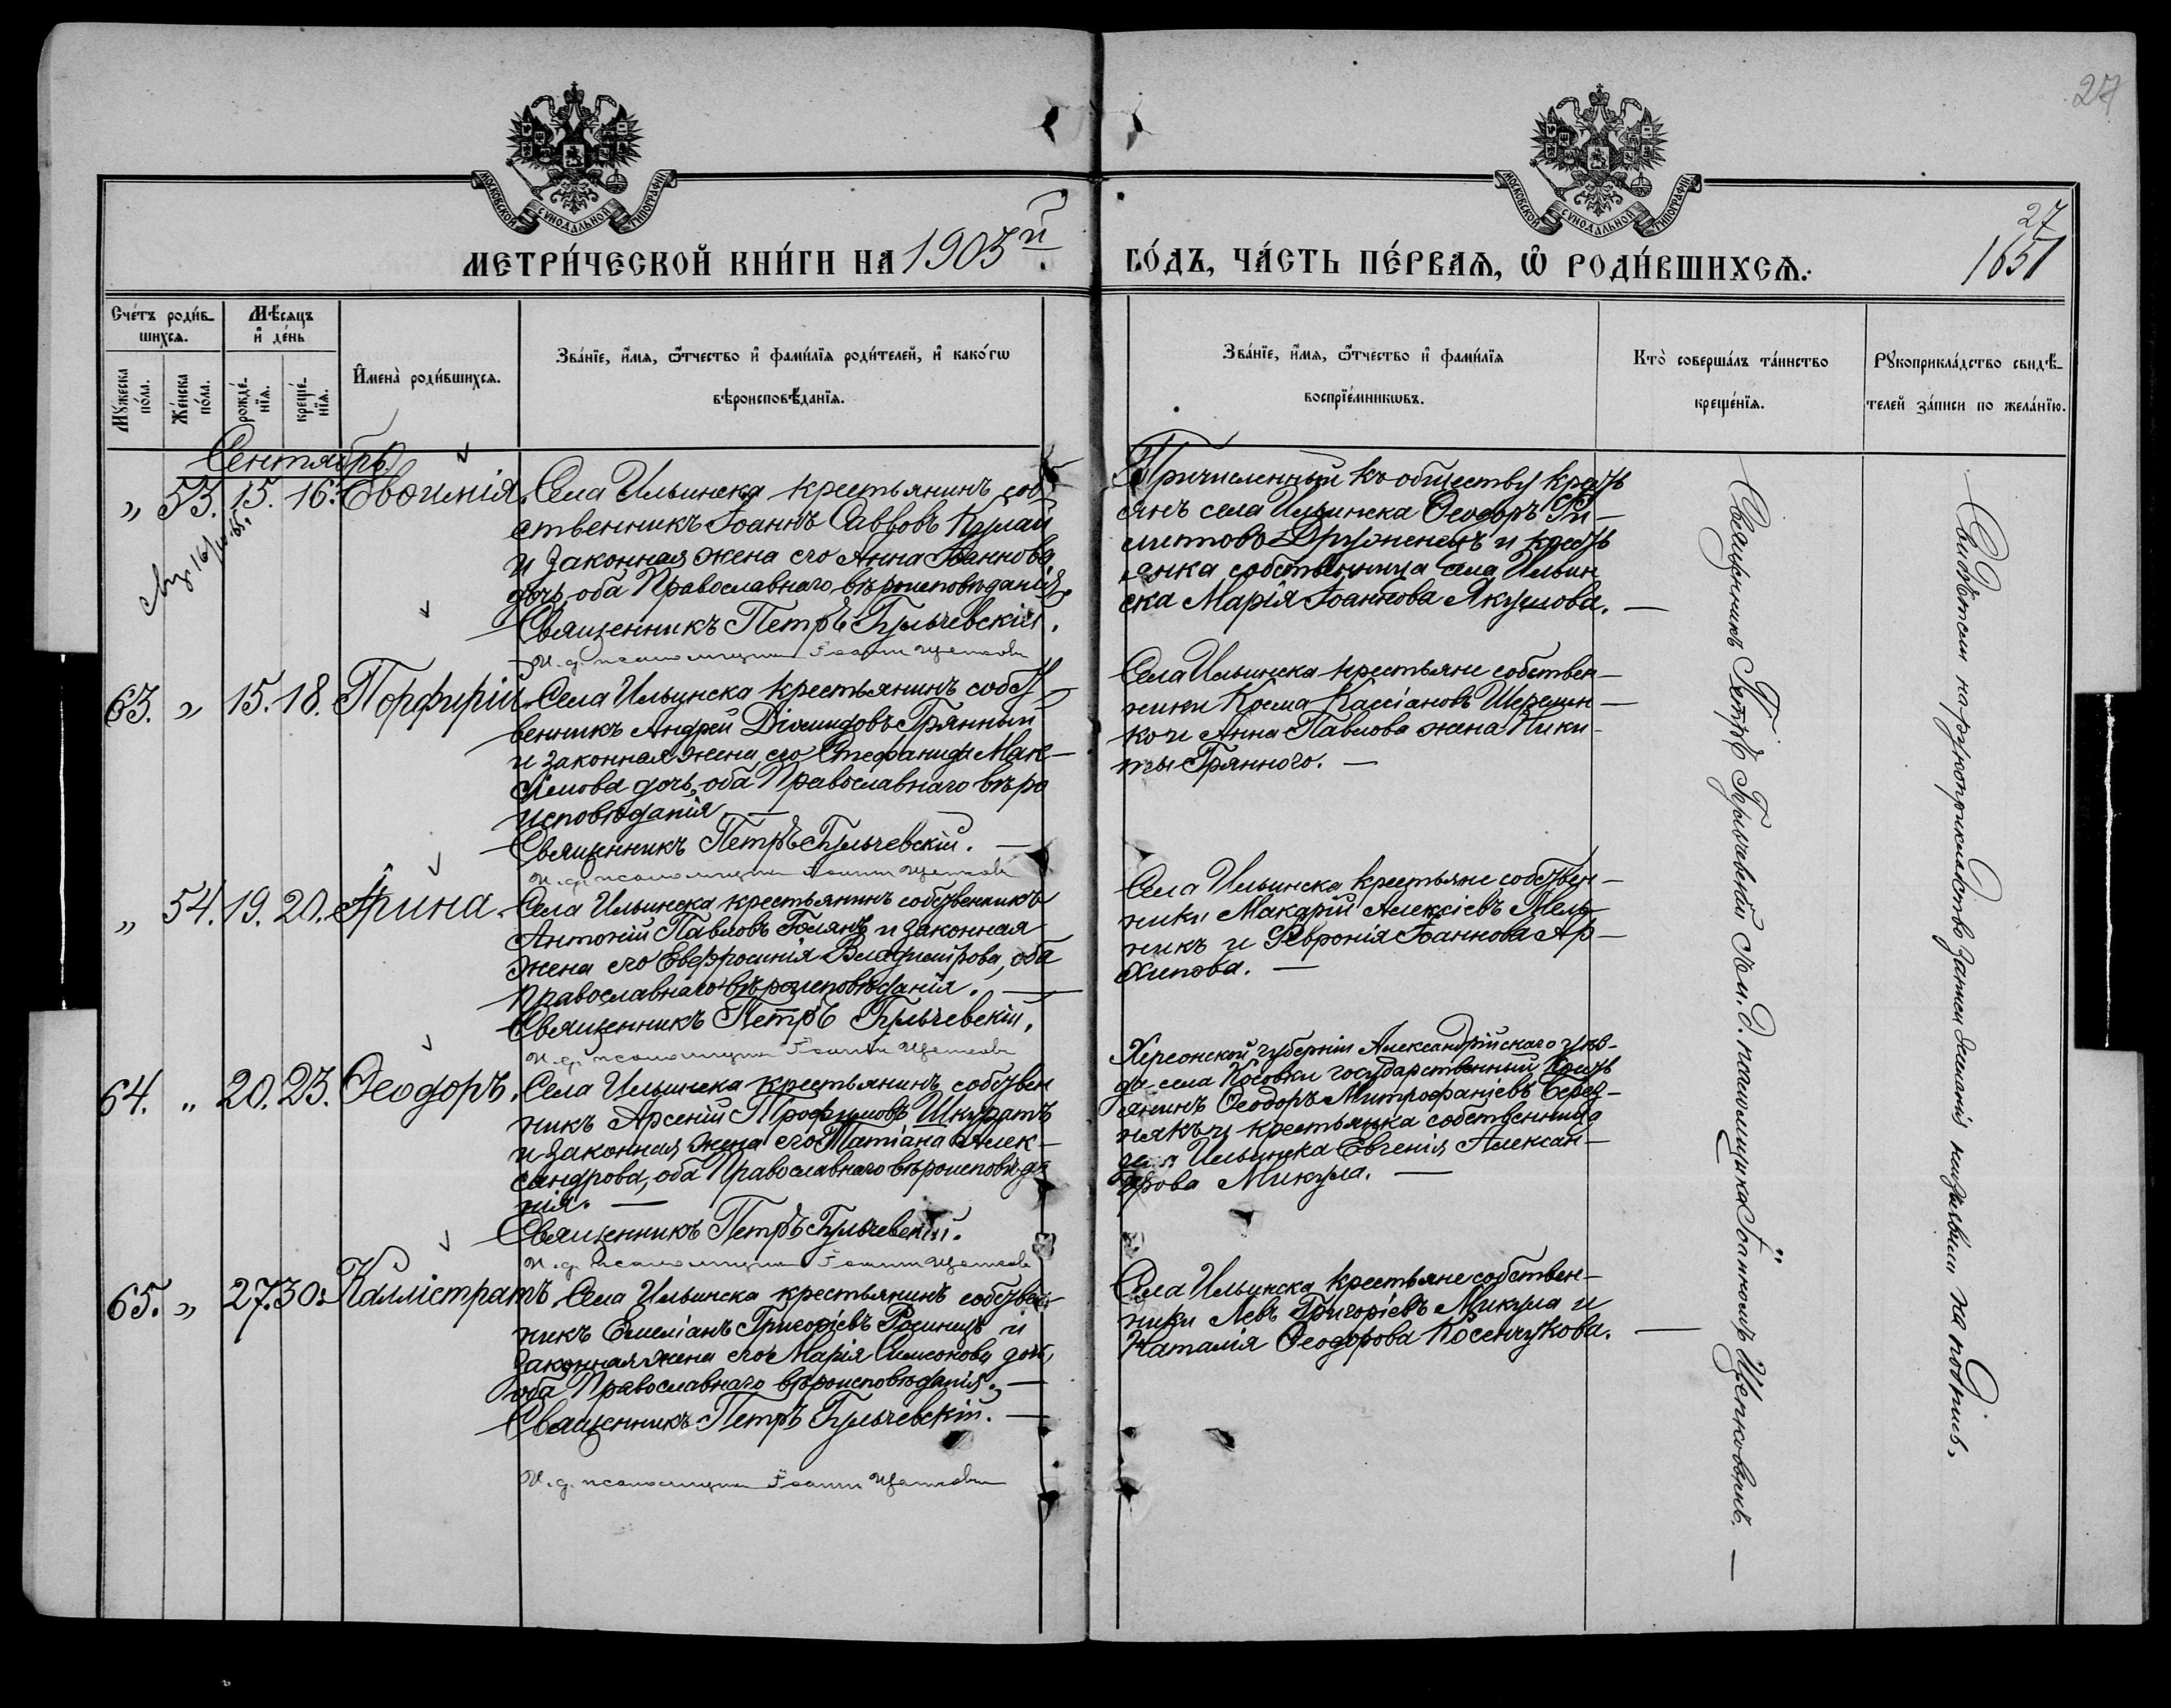 27
МОСКОВСКОЙ СУНОДАЛЬНОЙ ТИПОГРАФІИ
МОСКОВСКОЙ СУНОДАЛЬНОЙ ТИПОГРАФІИ
27
МЕТРИ́ЧЕСКОЙ КНИ́ГИ НА 1903й
ГО́ДЪ, ЧА́СТЬ ПЕ́РВАѦ, Ѡ РОДИ́ВШИХСѦ.
1651
Сче́тъ роди́в-
шихсѧ.
Мѣ́сѧцъ
и҆ де́нь
Мꙋ́жеска
по́ла.
Же́нска
по́ла.
рожде́-
нїѧ.
креще́-
нїѧ.
И҆мена̀ роди́вшихсѧ.
Зва́нїе, и҆́мѧ, ѻ҆́тчество и҆ фами́лїѧ роди́телей, и҆ како́гѡ
вѣроисповѣ́данїѧ.
Зва́нїе, и҆́мѧ, ѻ҆́тчество и҆ фами́лїѧ
воспрїе́мникѡвъ.
Кто̀ соверша́лъ та́инство
креще́нїѧ.
Рꙋкоприкла́дство свидѣ́-
телей за́писи по жела́нїю.
Сентябрь
„ 53. 15. 16. Евѳимія. Села Ильинска крестьянинъ соб
ственникъ Іоаннъ Саввовъ Кулай
и законная жена его Анна Іоаннова
дочь, оба Православнаго вѣроисповѣданія.
Священникъ Петръ Гульчевскій.
И. д. псаломщика Іоаннъ Щетковъ
Причисленный къ обществу кресть
янъ села Ильинска Ѳеодоръ
Друженецъ и кресть
янка собственница села Ильин
ска Марія Іоаннова Якушова. —
63. „ 15. 18. Порфирій. Села Ильинска крестьянинъ собст
венникъ Андрей Діомидовъ Грянный
и законная жена его Стефанида Мак-
сімова дочь, оба Православнаго вѣро
исповѣданія. —
Священникъ Петръ Гульчевскій. —
И. д. псаломщика Іоаннъ Щетковъ
Села Ильинска крестьяне собствен-
ники Косма Кассіановъ Шеремен-
ко и Анна Павлова жена Ники-
ты Грянного. —
„ 54. 19. 20. Ирина. Села Ильинска крестьянинъ собственникъ
Антоній Павловъ Голянъ и законная
жена его Евфросинія Владимірова, оба
православнаго вѣроисповѣданія. —
Священникъ Петръ Гульчевскій.
И. д. псаломщика Іоаннъ Щетковъ
Села Ильинска крестьяне собствен-
ники Макарій Алексіевъ Мель-
никъ и Февронія Іоаннова Ар-
хипова. —
64. „ 20. 23. Ѳеодоръ. Села Ильинска крестьянинъ собствен
никъ Арсеній Трофимовъ Шкуратъ
и законная жена его Татіана Алек-
сандрова, оба Православнаго вѣроисповѣда
нія. —
Священникъ Петръ Гульчевскій.
И. д. псаломщика Іоаннъ Щетковъ
Херсонской губерніи Александрійскаго уѣз-
да села Косовки государственный кресть
янинъ Ѳеодоръ Митрофаніевъ Берез-
някъ и крестьянка собственница
села Ильинска Евгенія Алексан-
дрова Микула. —
65. „ 27. 30. Каллістратъ. Села Ильинска крестьянинъ собствен
никъ Емеліанъ Григоріевъ Росинецъ и
законная жена его Марія Симеонова дочь,
оба Православнаго вѣроисповѣданія. —
Священникъ Петръ Гульчевскій. —
И. д. псаломщика Іоаннъ Щетковъ
Села Ильинска крестьяне собствен-
ники Левъ Григоріевъ Микула и
Наталія Ѳеодорова Косенчукова. —
Священникъ Петръ Гульчевскій съ и. д. псаломщика Іоанномъ Щетковымъ. —
Свидѣтели на рукоприкладство записи желанія не изъявили на подпись.